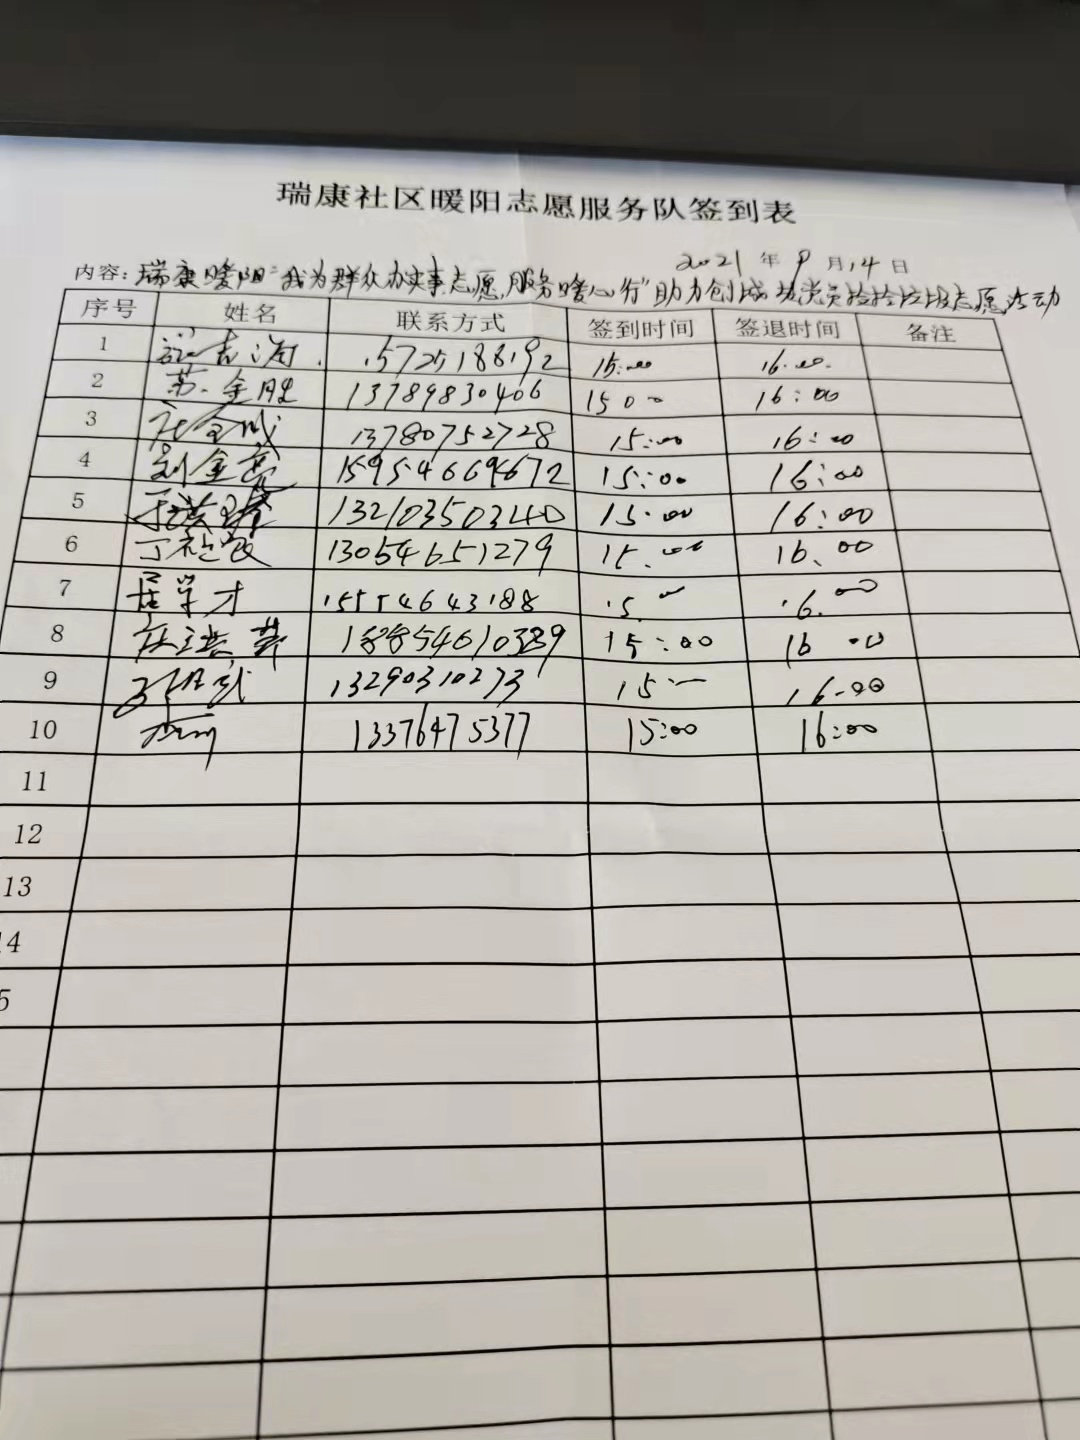 瑞康社区暖阳志愿服务队签到表
2021年9月14日
内容:瑞康暖阳“我为群众办实事志愿服务暖心行”助力创城 党员捡拾垃圾志愿活动
序号 姓名 联系方式 签到时间 签退时间 备注
1 15725188192 15:00 16:00
2 苏金胜 13789830406 15 00 16:00
3 13780752728 15:00 16:00
4 刘金亮 15954669672 15:00 16:00
5 13210350340 15:00 16:00
6 13054651279 15:00 16:00
7 居学才 15554643188 15:00 16:00
8 15:00 16:00
9 13290310273 15:00 16:00
10 13376475377 15:00 16:00
11
12
13
14
5